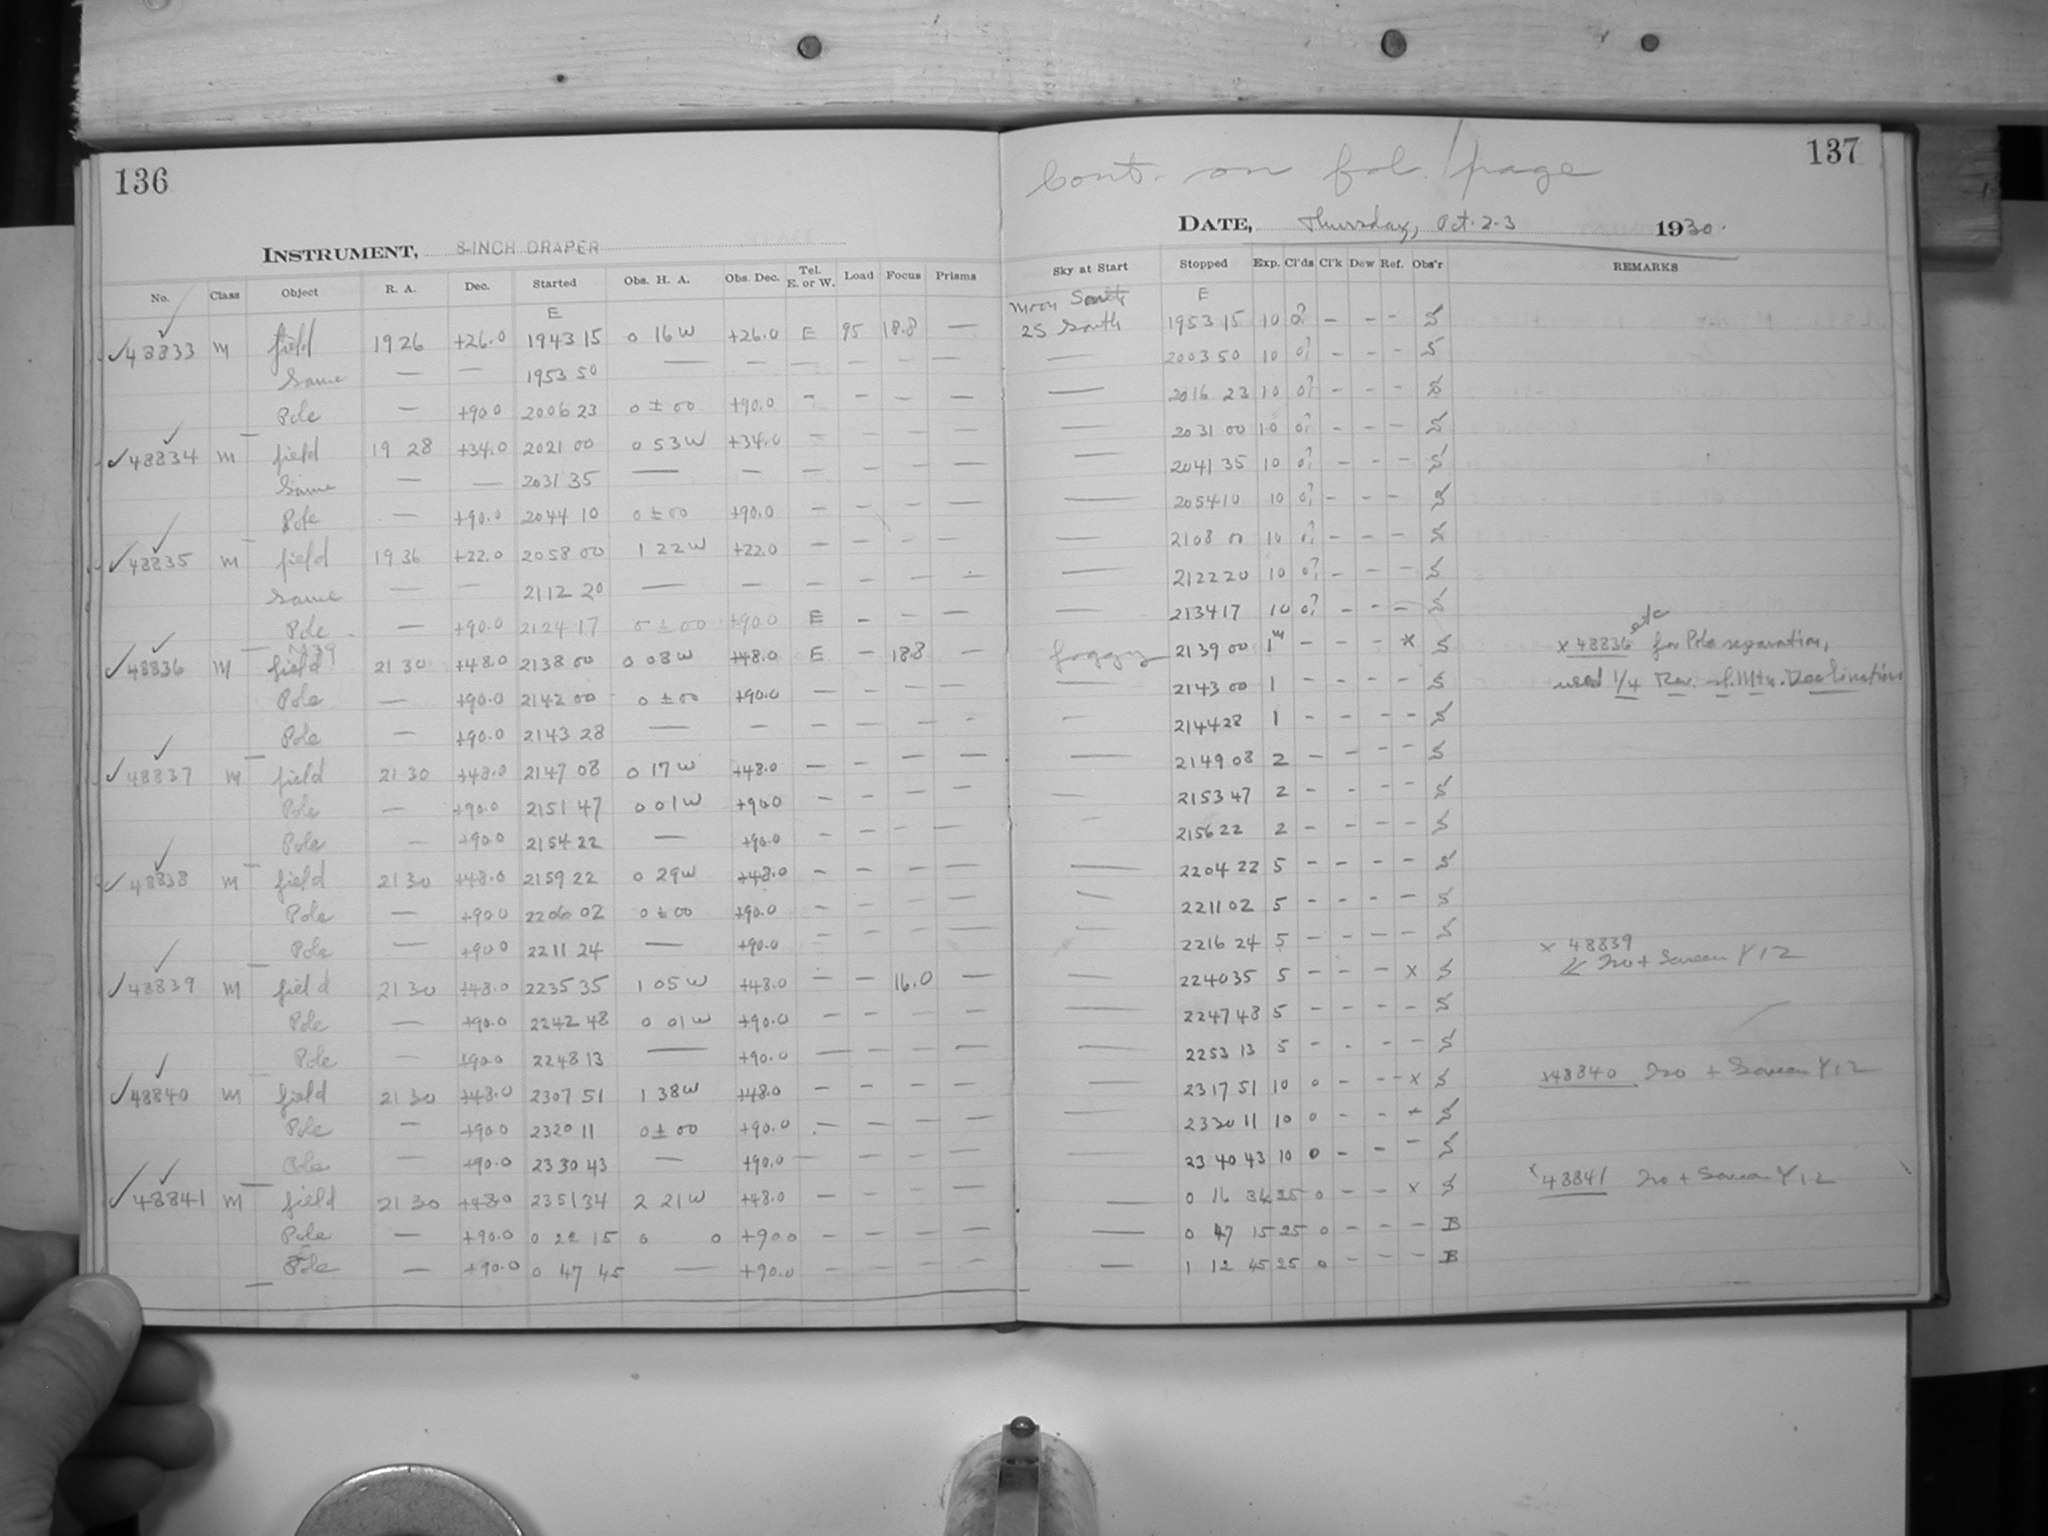 136
INSTRUMENT, 8-INCH DRAPER
No. Class Object R. A. Dec. Started Obs. H. A. Obs. Dec. Tel. E. or W. Load Focus Prisms
E
✓48833 M field 19 26 +26.0 19 43 15 0 16 W +26.0 E 95 18.8 —
Same — — 19 53 50 — — — — — —
Pole — +90.0 20 06 23 0 ± 00 +90.0 - — — —
✓48834 M field 19 28 +34.0 20 21 00 0 53 W +34.0 — — — —
Same — — 20 31 35 — — — — — —
Pole — +90.0 20 44 10 0 ± 00 +90.0 — — — —
✓48835 M field 19 36 +22.0 20 58 00 1 22 W +22.0 — — — —
Same — — 21 12 20 — — — — — —
Pole — +90.0 21 24 17 0 ± 00 +90.0 E — — —
M39
✓48836 M field 21 30 +48.0 21 38 00 0 08 W +48.0 E — 18.8 —
Pole — +90.0 21 42 00 0 ± 00 +90.0 — — — —
Pole — +90.0 21 43 28 — — — — — -
✓48837 M field 21 30 +48.0 21 47 08 0 17 W +48.0 — — — —
Pole — +90.0 21 51 47 0 01 W +90.0 — — — —
Pole — +90.0 21 54 22 — +90.0 — — — —
✓48838 M field 21 30 +48.0 21 59 22 0 29 W +48.0 — — — —
Pole — +90.0 22 06 02 0 ± 00 +90.0 — — — —
Pole — +90.0 22 11 24 — +90.0 — — — —
✓48839 M field 21 30 +48.0 22 35 35 1 05 W +48.0 — — 16.0 —
Pole — +90.0 22 42 48 0 01 W +90.0 — — — —
Pole — +90.0 22 48 13 — +90.0 — — — —
✓48840 M field 21 30 +48.0 23 07 51 1 38 W +48.0 — — — —
Pole — +90.0 23 20 11 0 ± 00 +90.0 — — — —
Pole — +90.0 23 30 43 — +90.0 — — — —
✓48841 M field 21 30 +48.0 23 51 34 2 21 W +48.0 — — — —
Pole — +90.0 0 22 15 0 0 +90.0 — — — —
Pole — +90.0 0 47 45 — +90.0 — — — —
137
Cont. on fol. page
DATE, Thursday, Oct. 2-3 1930.
Sky at Start Stopped Exp. Cl'ds Cl'k Dew Ref. Obs'r REMARKS
Moon South E
25 South 19 53 15 10 0? — — - S
— 20 03 50 10 0? - - - S
— 20 16 23 10 0? - - - S
— 20 31 00 10 0? - - - S
— 20 41 35 10 0? - - - S
— 20 54 10 10 0? - - - S
— 21 08 00 10 0? - - - S
— 21 22 20 10 0? - - - S
— 21 34 17 10 0? - - - S
foggy 21 39 00 1m - - - x S x 48836 etc for Pole separation,
— 21 43 00 1 - - - - S used 1/4 Rev. of Mtn. Declination
— 21 44 28 1 - - - - S
— 21 49 08 2 - - - - S
— 21 53 47 2 - - - - S
— 21 56 22 2 - - - - S
— 22 04 22 5 - - - - S
— 22 11 02 5 - - - - S
— 22 16 24 5 - - - - S x 48839
— 22 40 35 5 - - - x S Iso + Screen Y12
— 22 47 48 5 - - - - S
— 22 53 13 5 - - - - S
— 23 17 51 10 0 - - x S x48840 Iso + Screen Y12
— 23 30 11 10 0 - - - S
— 23 40 43 10 0 - - - S
— 0 16 34 25 0 - - x S x48841 Iso + Screen Y12
— 0 47 15 25 0 - - - B
— 1 12 45 25 0 - - - B